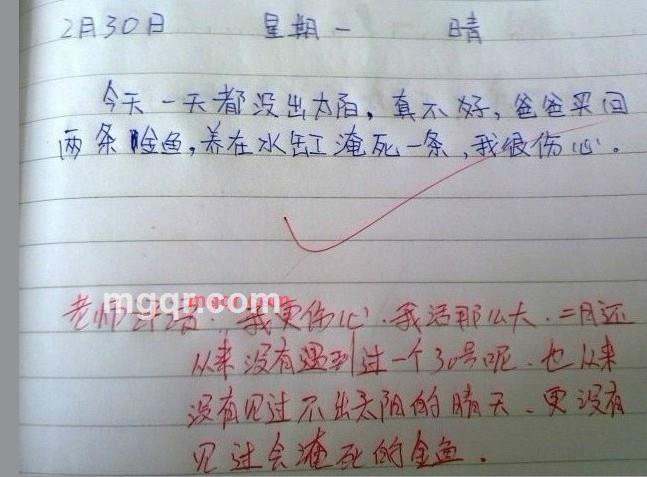 2月30日 星期一 晴
今天一天都没出太阳，真不好，爸爸买回
两条金鱼，养在水缸淹死一条，我很伤心。
老师评语：我更伤心．我活那么大．二月还
从来没有遇到过一个30号呢．也从来
没有见过不出太阳的晴天、更没有
见过会淹死的金鱼．
mgqr.com